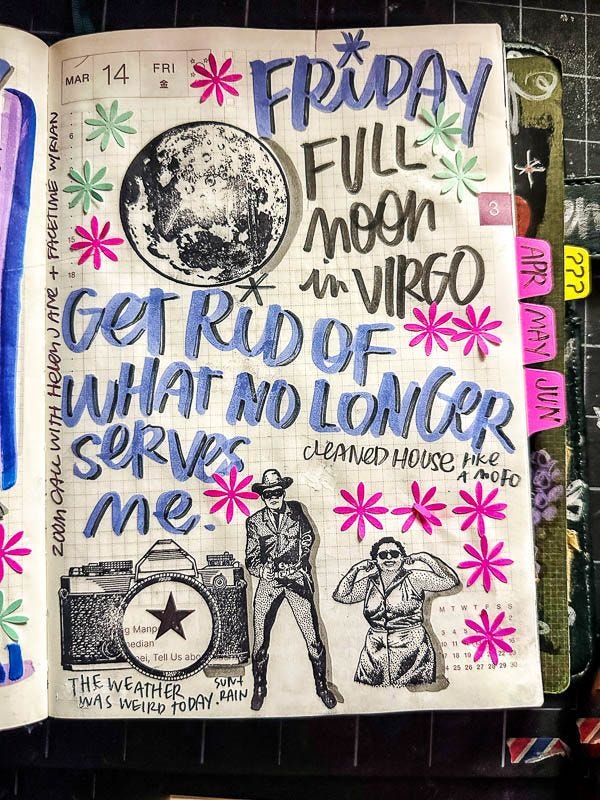 MAR 14 FRI
金
FRIDAY
FULL
MOON
in VIRGO
3
GET RID OF
WHAT NO LONGER
SERVES
me.
CLEANED HOUSE LIKE
A MOFO
ZOOM CALL WITH HELEN JANE + FACETIME W/RIAN
6
12
15
18
APR
MAY
JUN
???
g Manp
median
ei, Tell Us abo
THE WEATHER
WAS WEIRD TODAY.
SUN+
RAIN
M T W T F S S